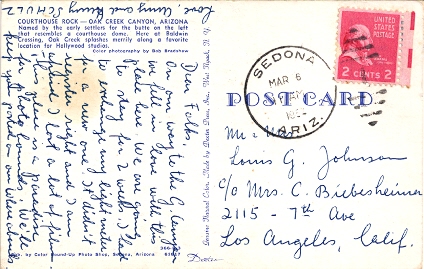 Love, Jimmy and Kenny SCHULZ
COURTHOUSE ROCK — OAK CREEK CANYON, ARIZONA
Named by the early settlers for the butte on the left
that resembles a courthouse dome. Here at Baldwin
Crossing, Oak Creek splashes merrily along a favorite
location for Hollywood studios.
Color photography by Bob Bradshaw
Dear Folks,
On our way to the G. Canyon
we fell in love with this
place here. We are going
to stay for 2 weeks. I had
to exchange my light meter
for a new one. It didn't
register right and I am
afraid I lost a lot of film.
This place is a paradise
for photo hounds. We'll
keep you posted on our whereabouts
Pub. by Color Round-Up Photo Shop, Sedona, Arizona
Dexter Press, Inc., West Nyack, N. Y.
Made by
Natural Color
Dexter
SEDONA
MAR 6
ARIZ.
UNITED STATES
POSTAGE
2 CENTS 2
POST CARD
Louis G. Johnson
c/o Mrs. C. Biebesheimer
2115 - 7th Ave
Los Angeles, Calif.